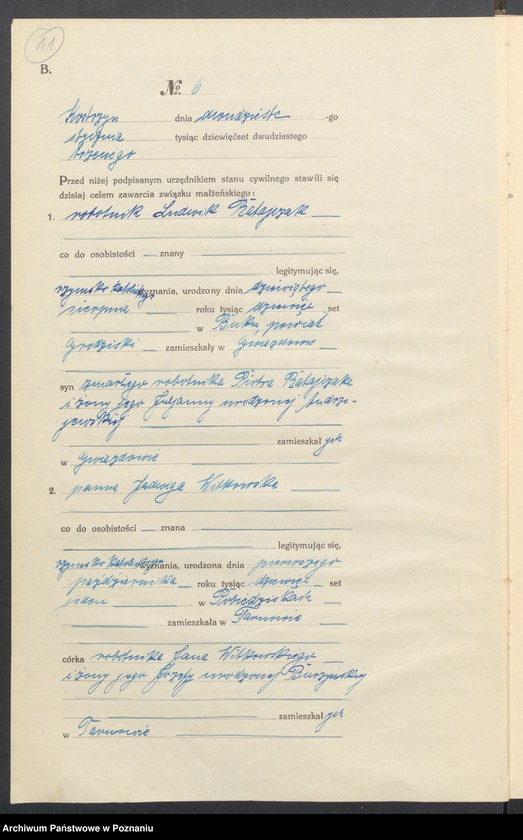 11
B.
No. 6
Kostrzyn dnia dwudzieste -go
stycznia tysiąc dziewięćset dwudziestego
trzeciego
Przed niżej podpisanym urzędnikiem stanu cywilnego stawili się
dzisiaj celem zawarcia związku małżeńskiego:
1. robotnik Ludwik Ratajczak
co do osobistości znany
legitymując się,
rzymsko katolickiego wyznania, urodzony dnia dziewiątego
sierpnia roku tysiąc dziewięć set
w Buku, powiat
Grodziski zamieszkały w Gwiazdowie
syn zmarłego robotnika Piotra Ratajczaka
i żony jego Julianny urodzonej Andrze-
jewskiej
zamieszkał
w Gwiazdowie
2. panna Jadwiga Witkowska
co do osobistości znana
legitymując się,
rzymsko katolickiego wyznania, urodzona dnia pierwszego
października roku tysiąc dziewięć set
jeden w Pobiedziskach
zamieszkała w Tarnowie
córka robotnika Jana Witkowskiego
i żony jego Józefy urodzonej Burzyńskiej
zamieszkał
w Tarnowie
Archiwum Państwowe w Poznaniu